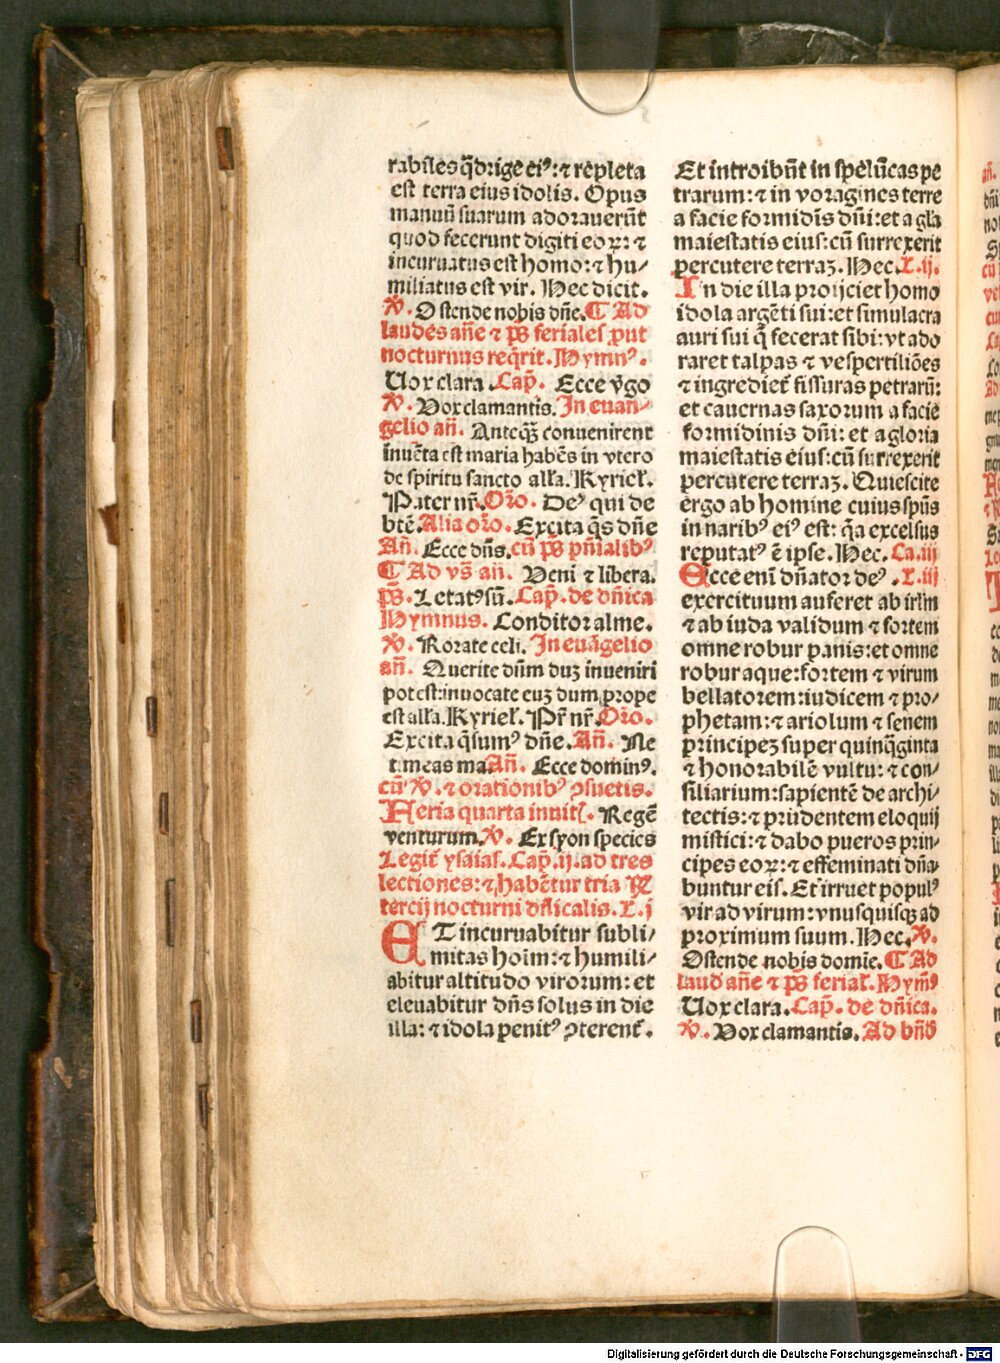 rabiles q̄drige ei⁹: ⁊ repleta
est terra eius idolis. Opus
manuū suarum adorauerūt
quod fecerunt digiti eoꝝ: ⁊
incuruatus est homo: ⁊ hu/
miliatus est vir. Hec dicit.
℣. Ostende nobis dñe. ¶ Ad
laudes añe ⁊ p̄s feriales ꝓut
nocturnus req̇rit. Hymn⁹.
Uox clara. Cap̄. Ecce v̇go
℣. Vox clamantis. In euan/
gelio añ. Anteqꝫ conuenirent
inuēta est maria habēs in vtero
de spiritu sancto alła. Kyrieł.
Pater nr̄. Oro. De⁹ qui de
btē. Alia oro. Excita q̄s dñe
Añ. Ecce dñs. cū p̄s pñialib⁹
¶ Ad vs̄ añ. Veni ⁊ libera.
p̄s. Letat⁹ sū. Cap̄. de dñica
Hymnus. Conditor alme.
℣. Rorate celi. In euāgelio
añ. Querite dūm duꝫ inueniri
potest: inuocate euꝫ dum prope
est alła. Kyrieł. Pr̄ nr̄. Oro.
Excita q̄sum⁹ dñe. Añ. Ne
timeas ma Añ. Ecce domin⁹.
cū ℣. ⁊ orationib⁹ ꝯsuetis.
Feria quarta inuit̄. Regē
venturum. ℣. Ex syon species
Legit̄ ysaias. Cap̄. ij. ad tres
lectiones: ⁊ habētur tria ℟
tercij nocturni dñicalis. L. j
ET incuruabitur subli/
mitas hoīm: ⁊ humili/
abitur altitudo virorum: et
eleuabitur dñs solus in die
illa: ⁊ idola penit⁹ ꝯterent̄.
Et introibūt in spelūcas pe
trarum: ⁊ in voragines terre
a facie formidīs dñi: et a gła
maiestatis eius: cū surrexerit
percutere terraꝫ. Hec. L. ij.
In die illa proijciet homo
idola argēti sui: et simulacra
auri sui q̄ fecerat sibi: vt ado
raret talpas ⁊ vespertiliōes
⁊ ingrediet̄ fissuras petrarū:
et cauernas saxorum a facie
formidinis dñi: et a gloria
maiestatis eius: cū surrexerit
percutere terraꝫ. Quiescite
ergo ab homine cuius sp̄us
in narib⁹ ei⁹ est: q̇a excelsus
reputat⁹ ē ipse. Hec. Ca. iij
Ecce eni dn̄ator de⁹. L. iij
exercituum auferet ab irłm
⁊ ab iuda validum ⁊ fortem
omne robur panis: et omne
robur aque: fortem ⁊ virum
bellatorem: iudicem ⁊ pro/
phetam: ⁊ ariolum ⁊ senem
principeꝫ super quinq̄ginta
⁊ honorabilē vultu: ⁊ con/
siliarium: sapientē de archi/
tectis: ⁊ prudentem eloquij
mistici: ⁊ dabo pueros prin/
cipes eoꝝ: ⁊ effeminati dn̄a/
buntur eis. Et irruet popul⁹
vir ad virum: vnusquisqꝫ ad
proximum suum. Hec. ℣.
Ostende nobis domie. ¶ Ad
laud̄ añe ⁊ p̄s feriał. Hym⁹
Uox clara. Cap̄. de dñica.
℣. Vox clamantis. Ad bn̄d
Digitalisierung gefördert durch die Deutsche Forschungsgemeinschaft - DFG